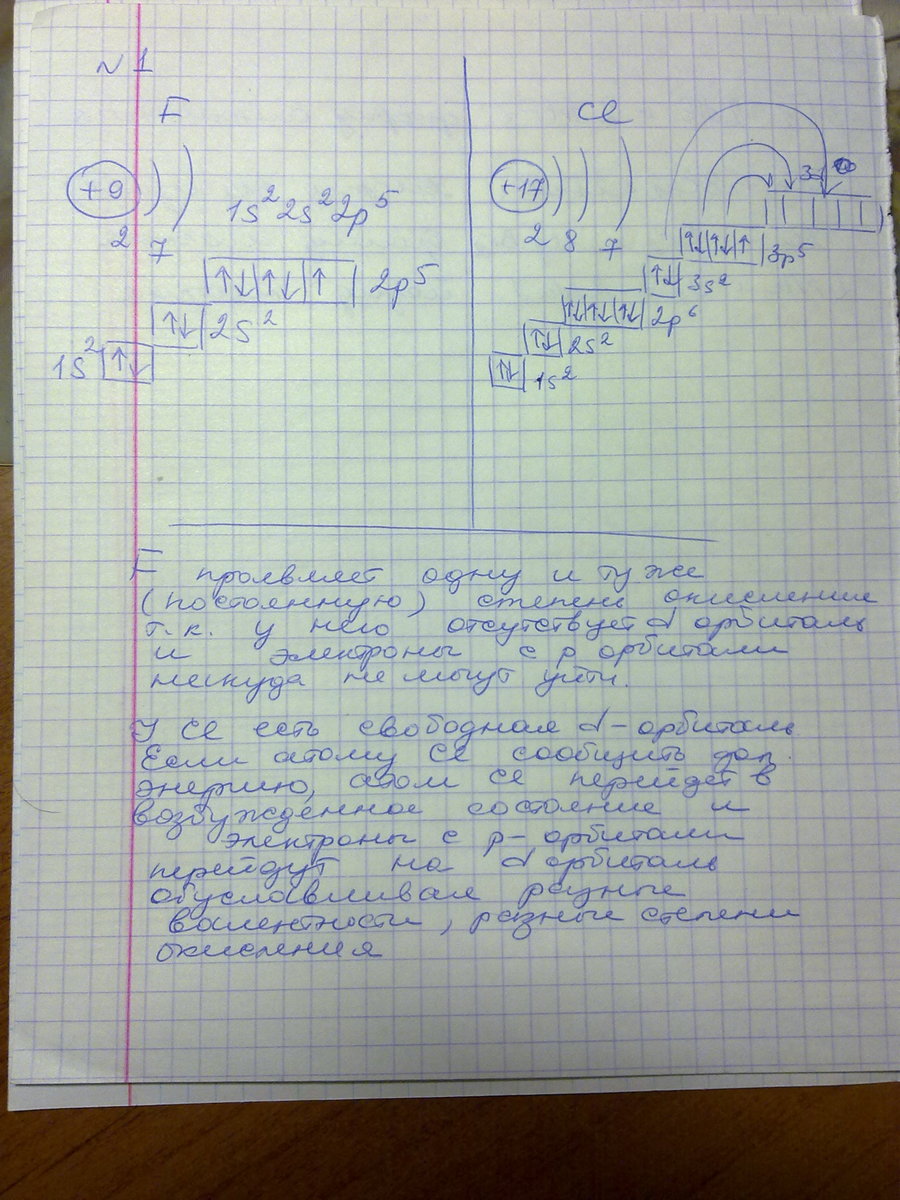 №1
F
+9
2 7
1s² 2s² 2p⁵
↑↓ ↑↓ ↑ 2p⁵
↑↓ 2s²
1s² ↑↓
Cl
+17
2 8 7
3d
↑↓ ↑↓ ↑ 3p⁵
↑↓ 3s²
↑↓ ↑↓ ↑↓ 2p⁶
↑↓ 2s²
↑↓ 1s²
F проявляет одну и ту же
(постоянную) степень окисления
т.к. у него отсутствует d орбиталь
и электроны с p орбитали
никуда не могут уйти.
У Cl есть свободная d-орбиталь
Если атому Cl сообщить доп.
энергию, атом Cl перейдет в
возбуждённое состояние и
электроны с p-орбитали
перейдут на d орбиталь
обуславливая разные
валентности, разные степени
окисления